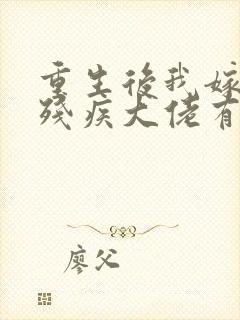 重生後我嫁
殘疾大佬有
廖父